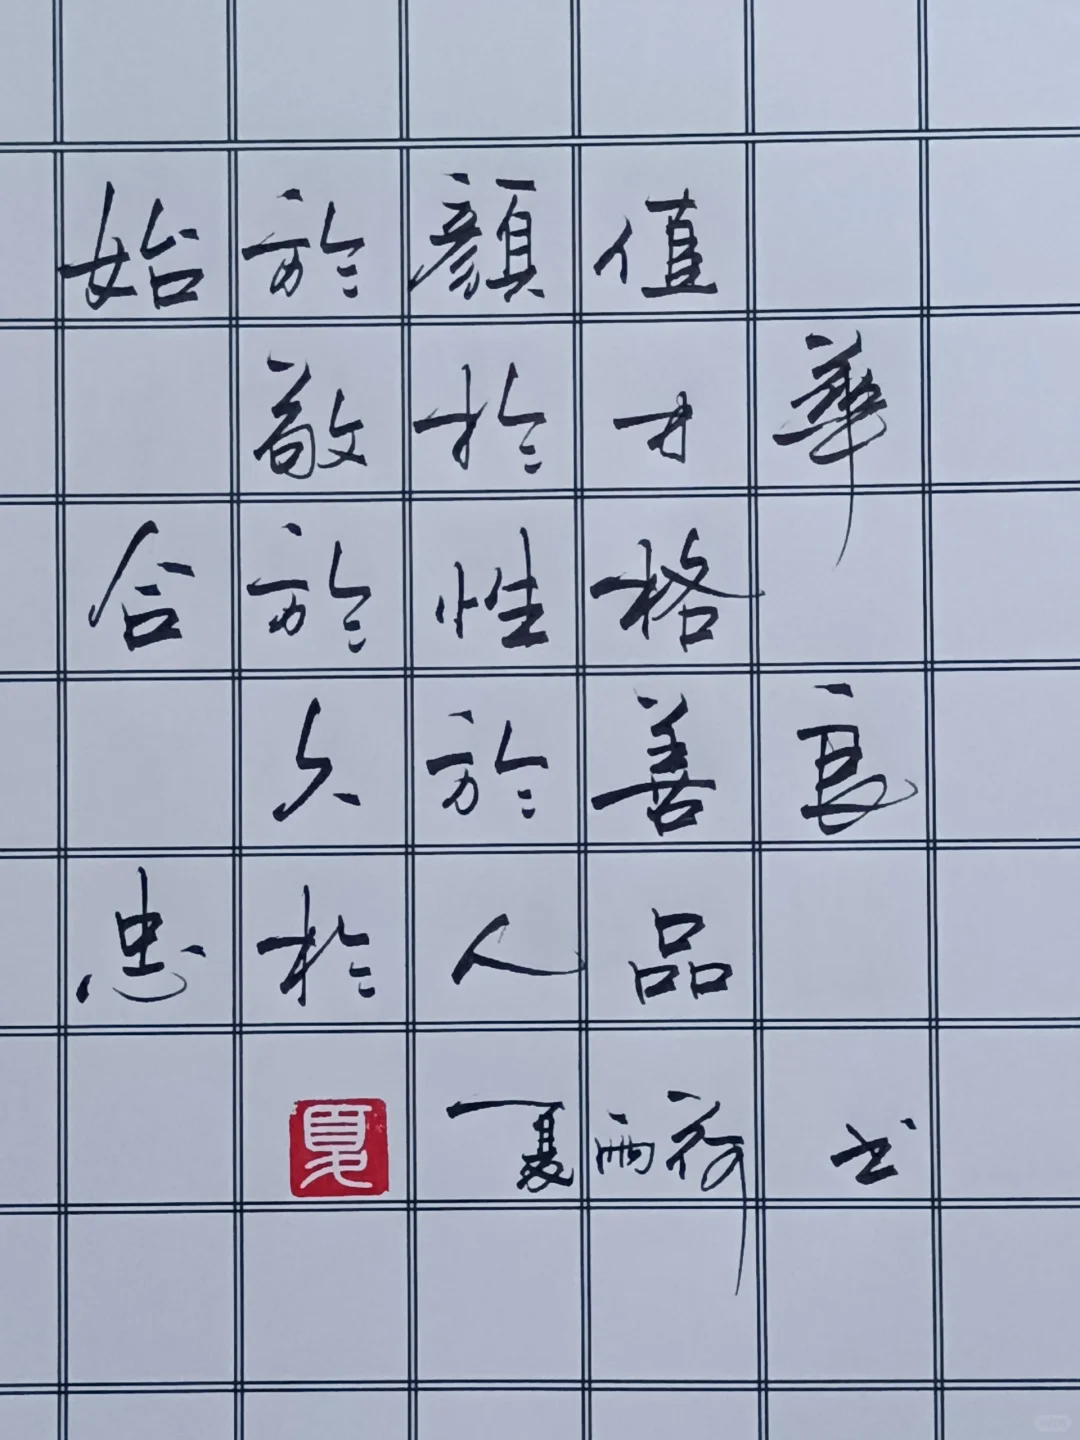 始於顏值
敬於才華
合於性格
久於善良
忠於人品
夏
夏雨荷 书